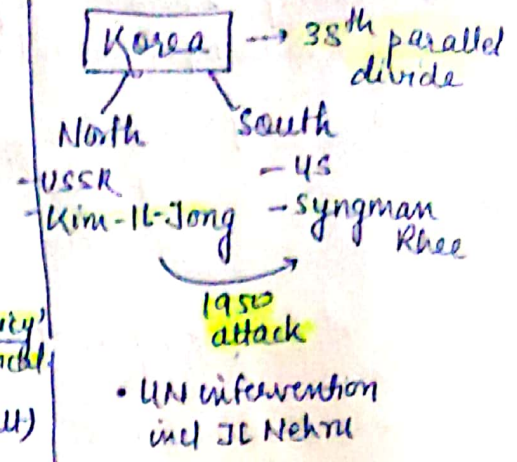 Korea → 38th parallel
divide
North South
- USSR - US
- Kim-Il-Jong - Syngman
Rhee
1950
attack
• UN intervention
incl JL Nehru